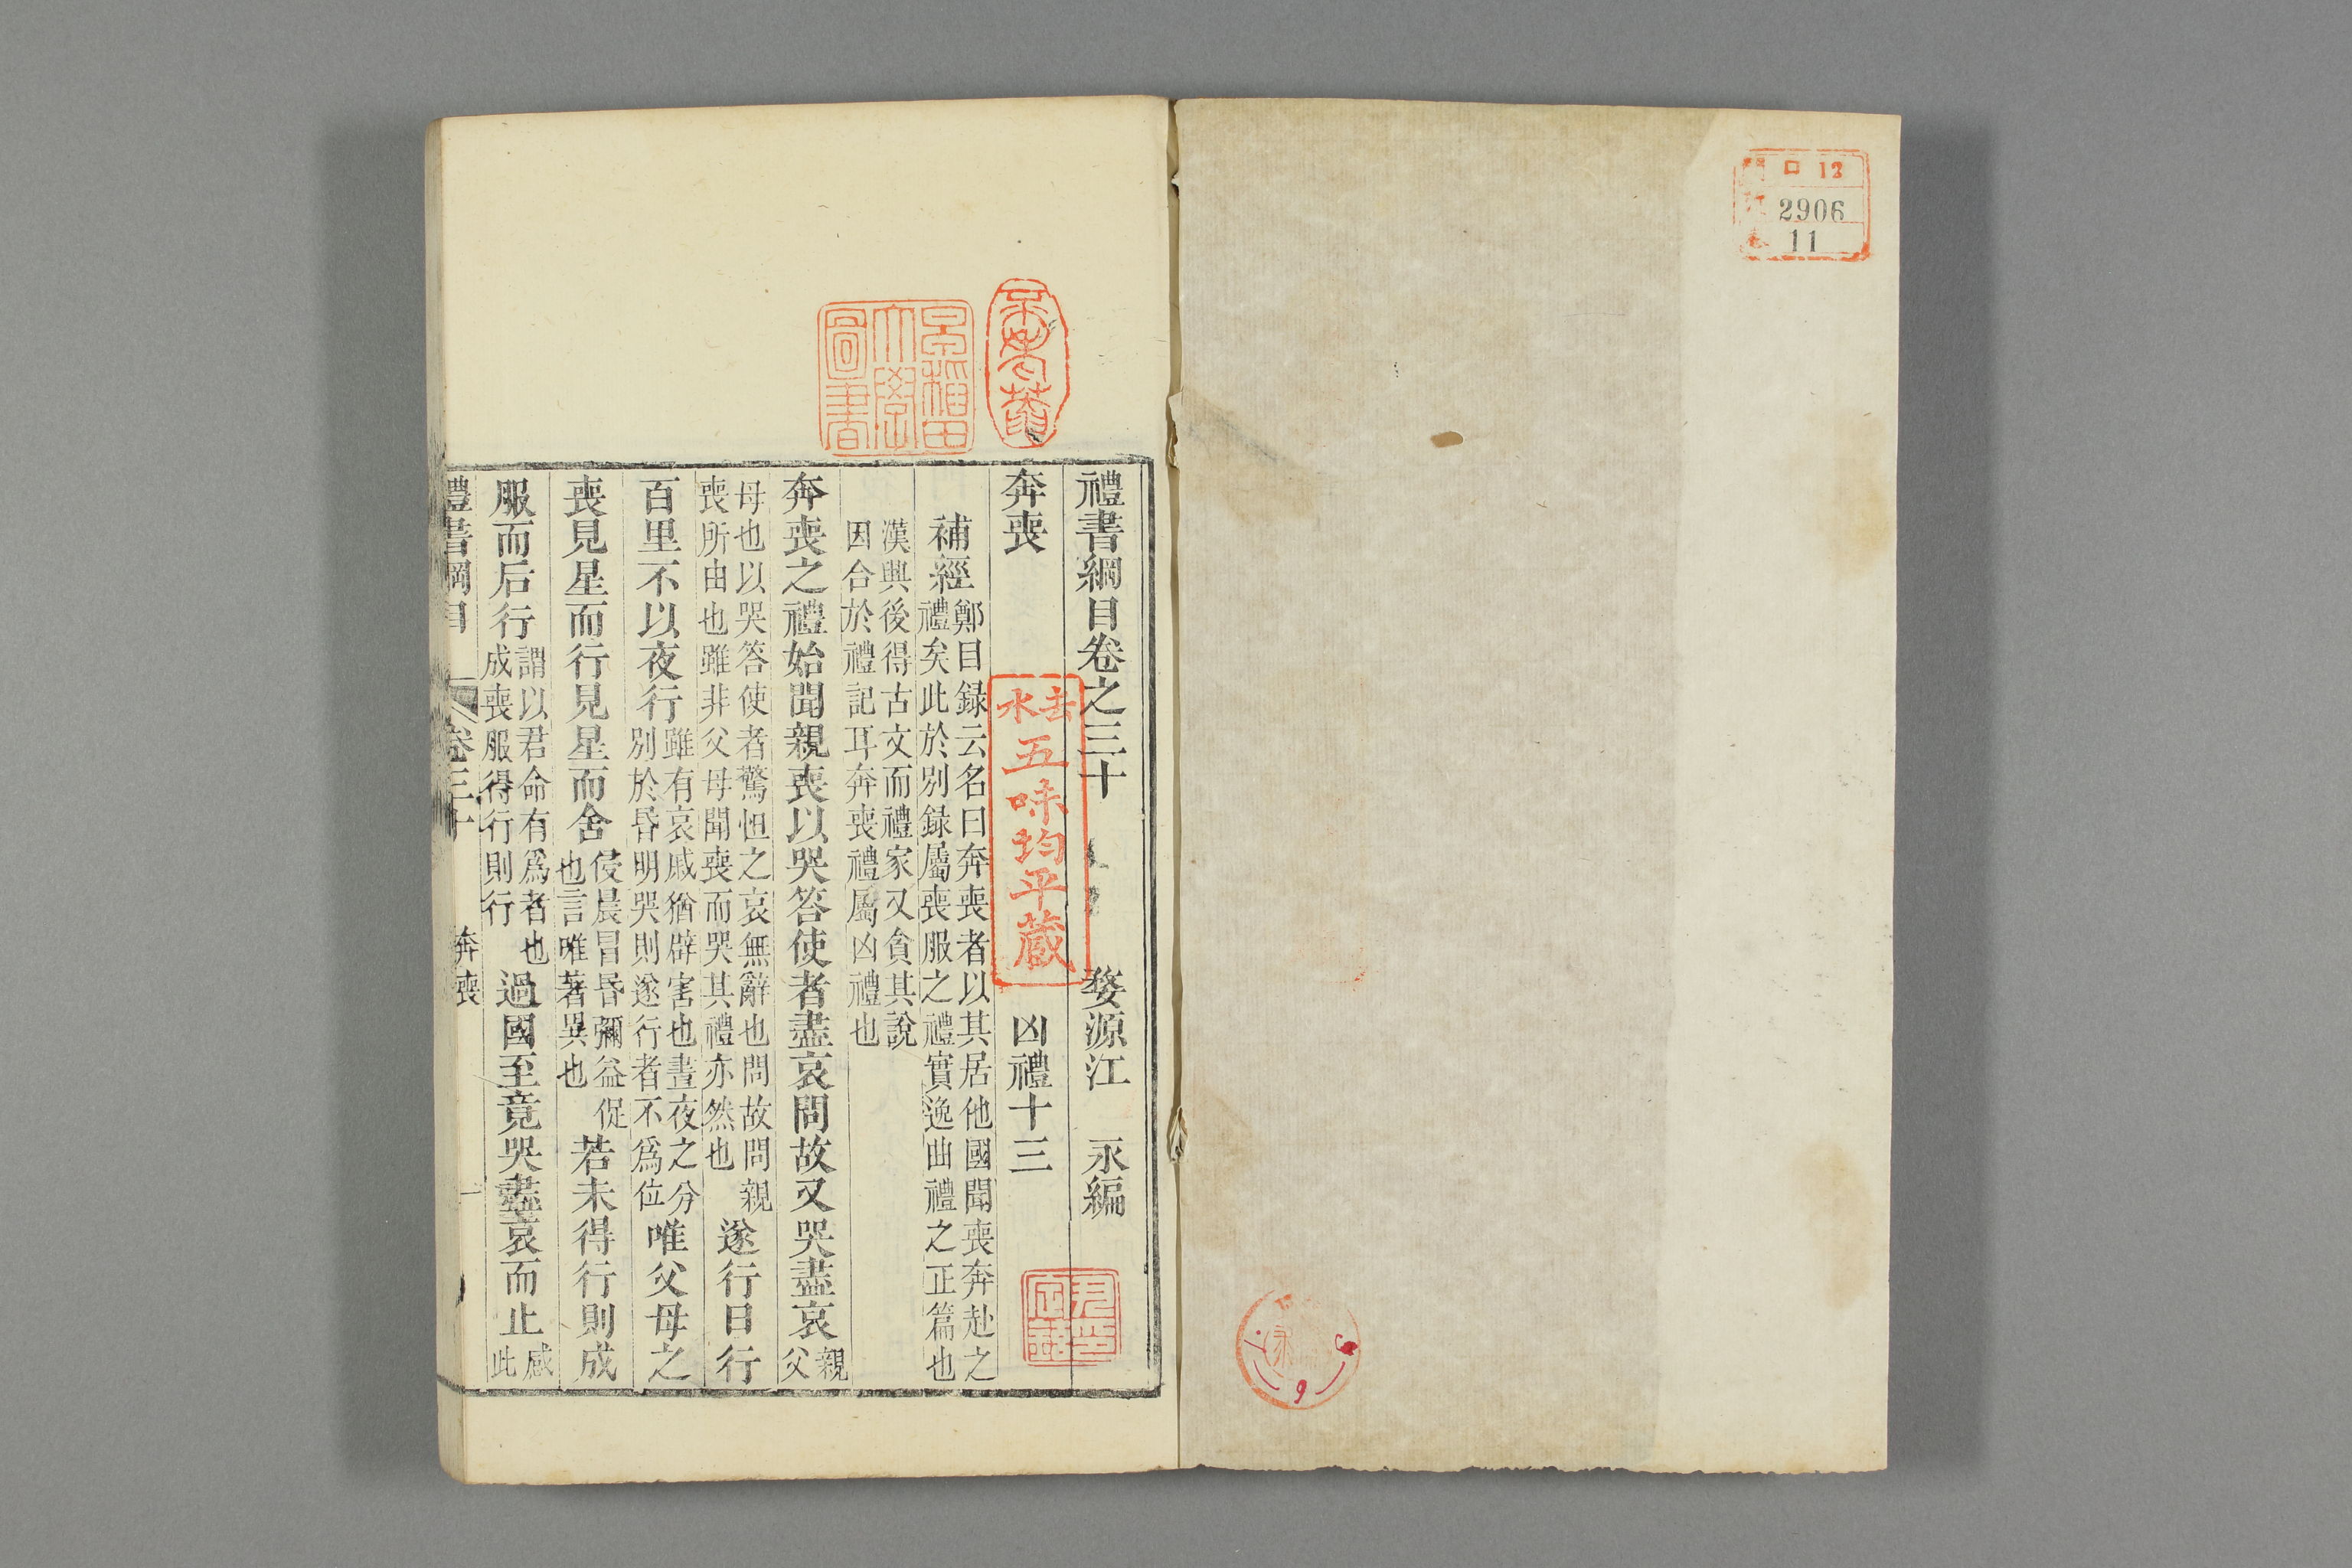 口 12
2906
11
禮書綱目卷之三十 婺源江 永編
奔喪 凶禮十三
補經鄭目録云名曰奔喪者以其居他國聞喪奔赴之
禮矣此於別録屬喪服之禮實逸曲禮之正篇也
漢興後得古文而禮家又貪其說
因合於禮記耳奔喪禮屬凶禮也
奔喪之禮始聞親喪以哭答使者盡哀問故又哭盡哀親
父
母也以哭答使者驚怛之哀無辭也問故問親
喪所由也雖非父母聞喪而哭其禮亦然也
遂行日行
百里不以夜行雖有哀戚猶辟害也晝夜之分
別於昏明哭則遂行者不爲位
唯父母之
喪見星而行見星而舍侵晨冒昏彌益促
也言唯著異也
若未得行則成
服而后行謂以君命有爲者也
成喪服得行則行
過國至竟哭盡哀而止感
此
禮書綱目 卷三十 奔喪 一
早稻田
大學
圖書
五味均平蔵